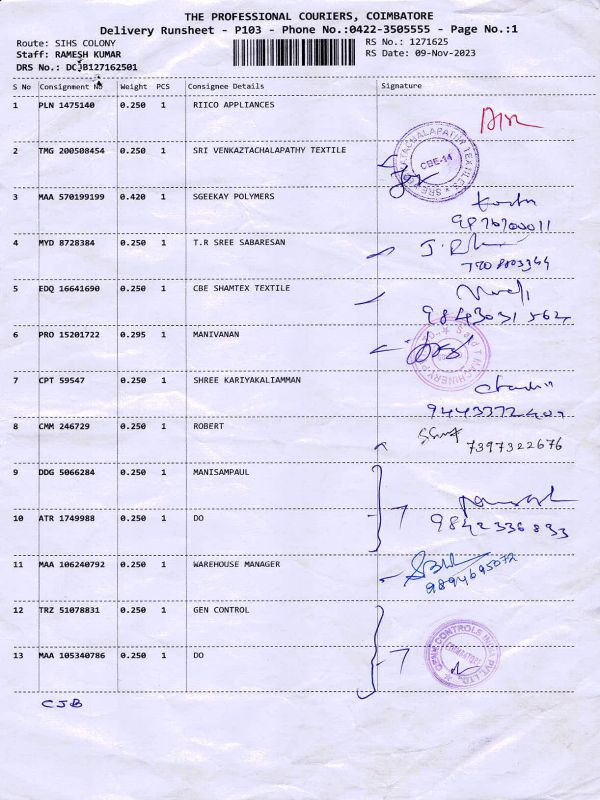 THE PROFESSIONAL COURIERS, COIMBATORE
Delivery Runsheet - P103 - Phone No.:0422-3505555 - Page No.:1
Route: SIHS COLONY
RS No.: 1271625
Staff: RAMESH KUMAR
RS Date: 09-Nov-2023
DRS No.: DCJB127162501
S No Consignment No Weight PCS Consignee Details Signature
1 PLN 1475140 0.250 1 RIICO APPLIANCES
2 TMG 200508454 0.250 1 SRI VENKAZTACHALAPATHY TEXTILE
CBE-14
3 MAA 570199199 0.420 1 SGEEKAY POLYMERS
4 MYD 8728384 0.250 1 T.R SREE SABARESAN
5 EDQ 16641690 0.250 1 CBE SHAMTEX TEXTILE
9843031564
6 PRO 15201722 0.295 1 MANIVANAN
7 CPT 59547 0.250 1 SHREE KARIYAKALIAMMAN
8 CMM 246729 0.250 1 ROBERT
7397322676
9 DDG 5066284 0.250 1 MANISAMPAUL
10 ATR 1749988 0.250 1 DO
9842336833
11 MAA 106240792 0.250 1 WAREHOUSE MANAGER
9894695072
12 TRZ 51078831 0.250 1 GEN CONTROL
13 MAA 105340786 0.250 1 DO
CJB